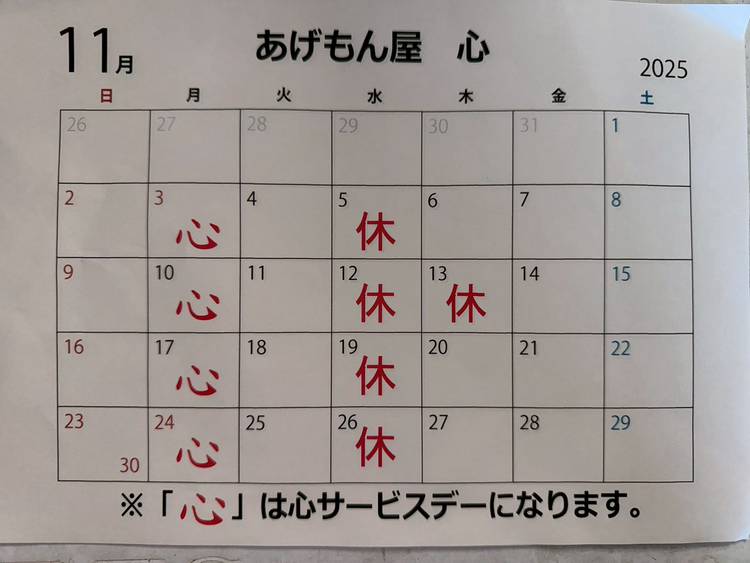 11月 あげもん屋 心 2025
日 月 火 水 木 金 土
26 27 28 29 30 31 1
2 3 4 5 6 7 8
心 休
9 10 11 12 13 14 15
心 休 休
16 17 18 19 20 21 22
心 休
23 24 25 26 27 28 29
30 心 休
※「心」は心サービスデーになります。